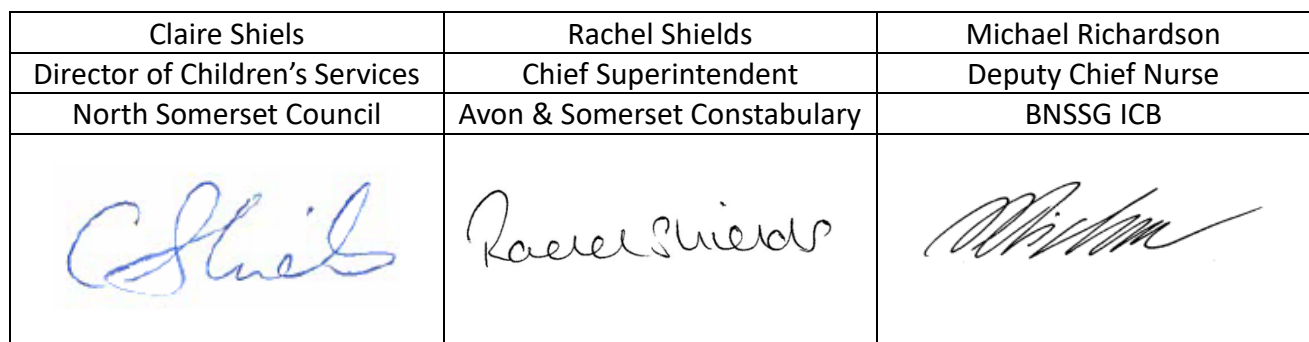 Claire Shiels Rachel Shields Michael Richardson
Director of Children’s Services Chief Superintendent Deputy Chief Nurse
North Somerset Council Avon & Somerset Constabulary BNSSG ICB
C Shiels Rachel Shields